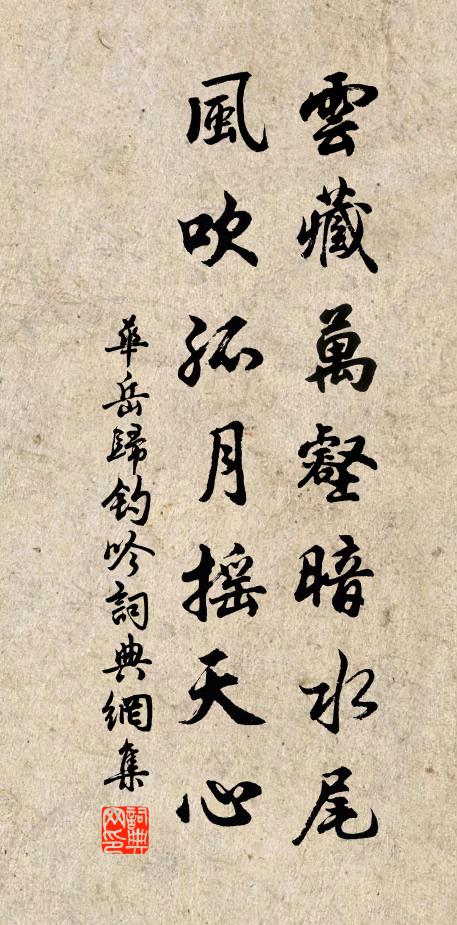 雲藏萬壑暗水尾
風吹孤月摇天心
華岳歸釣吟詞典網集
詞典网印